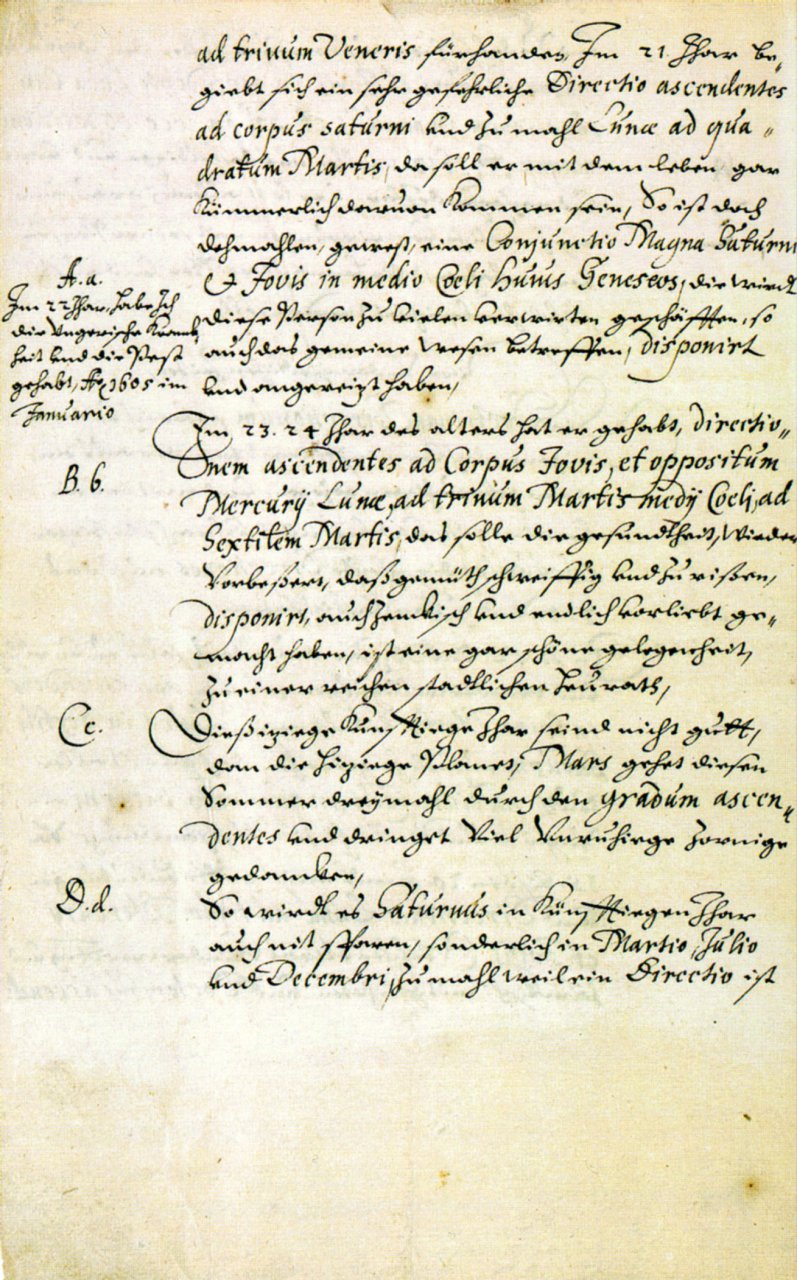 ad trinum Veneris fürhanden, Im 21 Jhar be„
giebt sich ein sehr gefehrliche Directio ascendentes
ad corpus Saturni vnd zu mahl Lunæ ad qua„
dratum Martis, da soll er mit dem leben gar
kümmerlich dauon kommen sein, So ist doch
dehmahlen, gewest, eine Conjunctio Magna Saturni
& Jovis in medio Cœli huius Geneseos, die wirdt
diese Person zu vielen verwirten geschäfften, so
auch das gemeine wesen betreffen, disponirt
vnd angereitzt haben,
A. a.
Im 22 Jhar, habe Ich
die Vngerische Kranck
heit vnd die Pest
gehabt, Aō 1605 im
Januario
Im 23. 24 Jhar des alters hat er gehabt, directio„
nem ascendentes ad Corpus Jovis, et oppositum
B. b.
Mercurij Lunæ, ad trinum Martis medij Cœli, ad
Sextilem Martis, das solle die gesundtheit, wieder
vorbeßert, daß gemüth schweiffig vnd zu reißen,
disponirt, auch zenckisch vnd endlich vorliebt ge„
macht haben, ist eine gar schöne gelegenheit,
zu einer reichen stadtlichen heurath,
C c.
Dieß itziege künfftiege Jhar seind nicht gutt,
dan die hitziege Planet, Mars gehet diesen
Sommer dreymahl durch den gradum ascen„
dentes vnd dringet viel vnruhiege zornige
gedancken,
D. d.
So wirdt es Saturnus in künfftiegen Jhar
auch nit sparen, sonderlich in Martio, Julio
vnd Decembri, zu mahl weil ein Directio ist